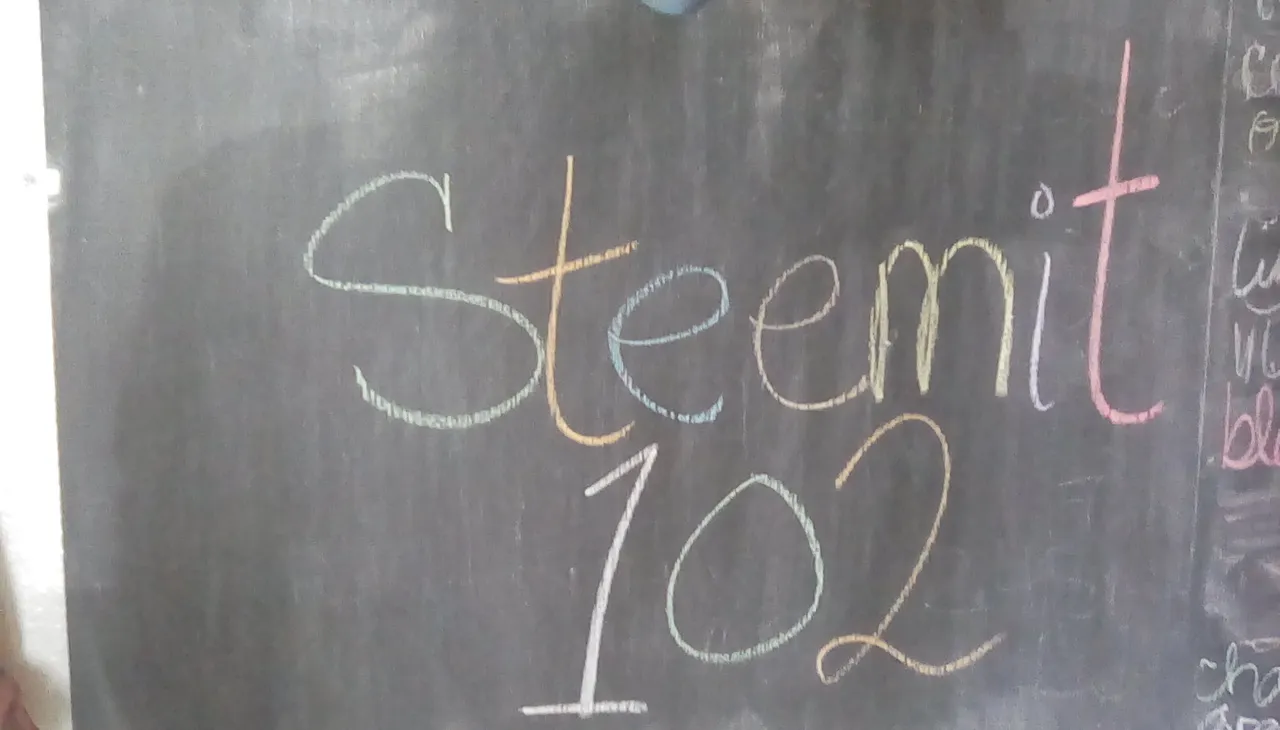 Steemit
102